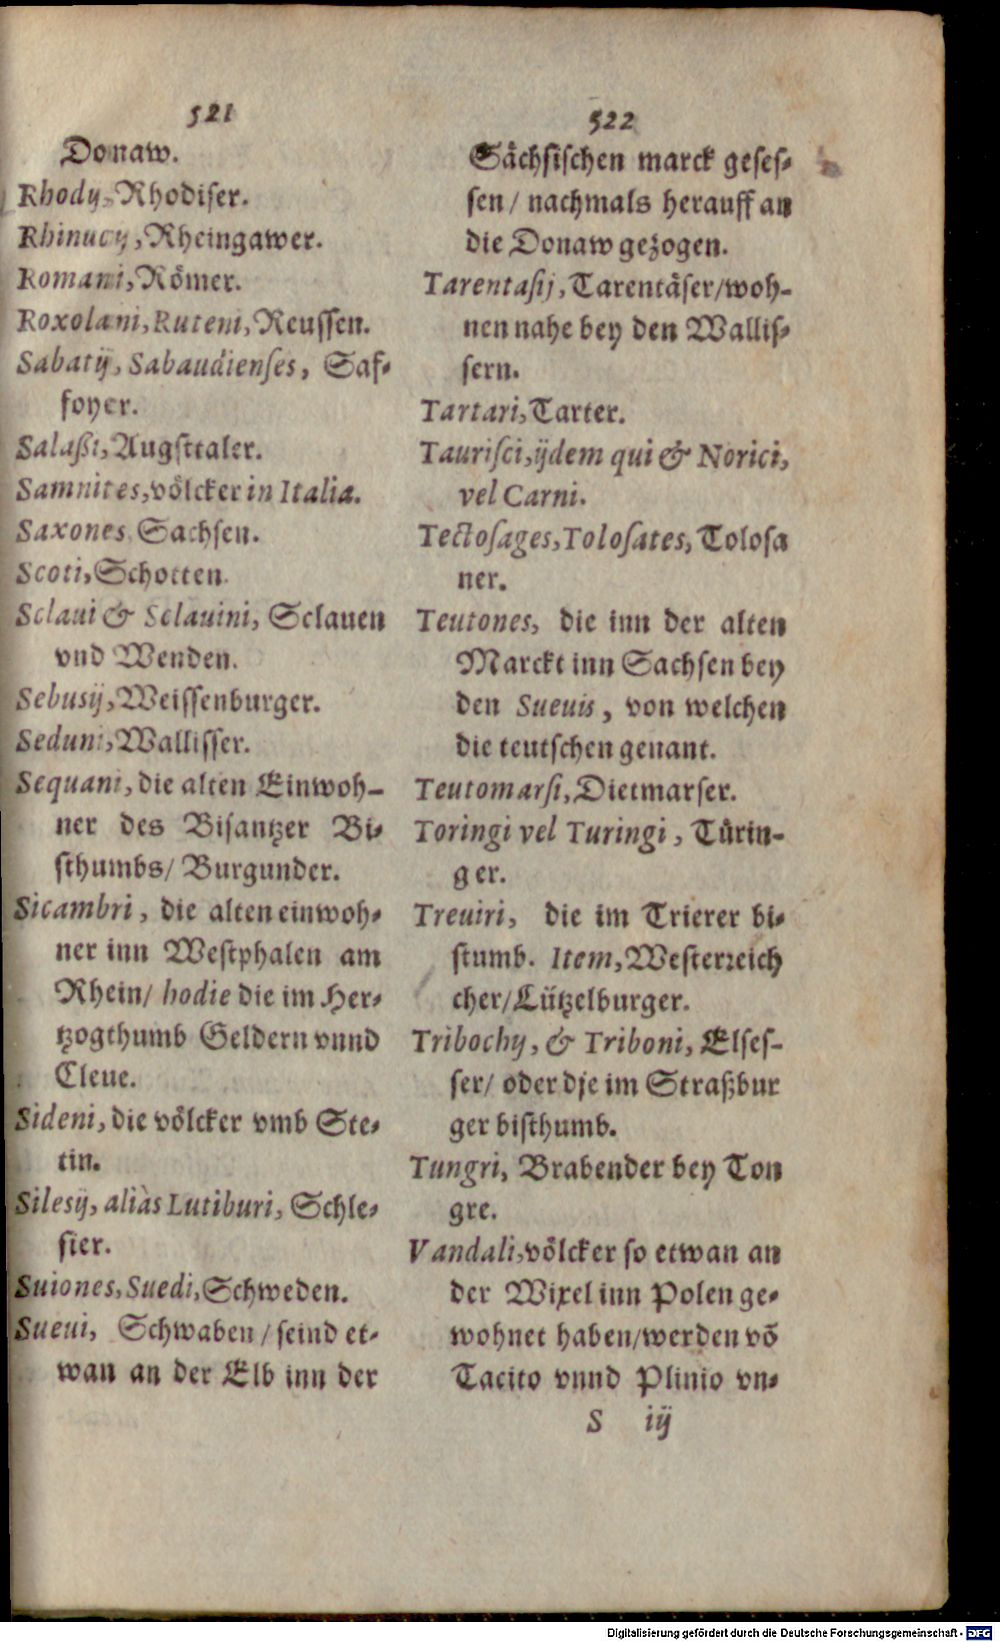 521
Donaw.
Rhody, Rhodiser.
Rhinucy, Rheingawer.
Romani, Römer.
Roxolani, Ruteni, Reussen.
Sabatij, Sabaudienses, Saf-
foyer.
Salaßi, Augsttaler.
Samnites, völcker in Italia.
Saxones Sachsen.
Scoti, Schotten.
Sclaui & Sclauini, Sclauen
vnd Wenden.
Sebusij, Weissenburger.
Seduni, Wallisser.
Sequani, die alten Einwoh-
ner des Bisantzer Bi-
sthumbs/ Burgunder.
Sicambri, die alten einwoh-
ner inn Westphalen am
Rhein/ hodie die im Her-
tzogthumb Geldern vnnd
Cleue.
Sideni, die völcker vmb Ste-
tin.
Silesij, aliàs Lutiburi, Schle-
sier.
Suiones, Suedi, Schweden.
Sueui, Schwaben / seind et-
wan an der Elb inn der
522
Sächsischen marck geses-
sen / nachmals herauff an
die Donaw gezogen.
Tarentasij, Tarentäser/woh-
nen nahe bey den Wallis-
sern.
Tartari, Tarter.
Taurisci, ijdem qui & Norici,
vel Carni.
Tectosages, Tolosates, Tolosa
ner.
Teutones, die inn der alten
Marckt inn Sachsen bey
den Sueuis, von welchen
die teutschen genant.
Teutomarsi, Dietmarser.
Toringi vel Turingi, Türin-
ger.
Treuiri, die im Trierer bi-
stumb. Item, Westerreich
cher/Lützelburger.
Tribochy, & Triboni, Elses-
ser/ oder dje im Straßbur
ger bisthumb.
Tungri, Brabender bey Ton
gre.
Vandali, völcker so etwan an
der Wixel inn Polen ge-
wohnet haben/werden võ
Tacito vnnd Plinio vn-
S iij
Digitalisierung gefördert durch die Deutsche Forschungsgemeinschaft - DFG